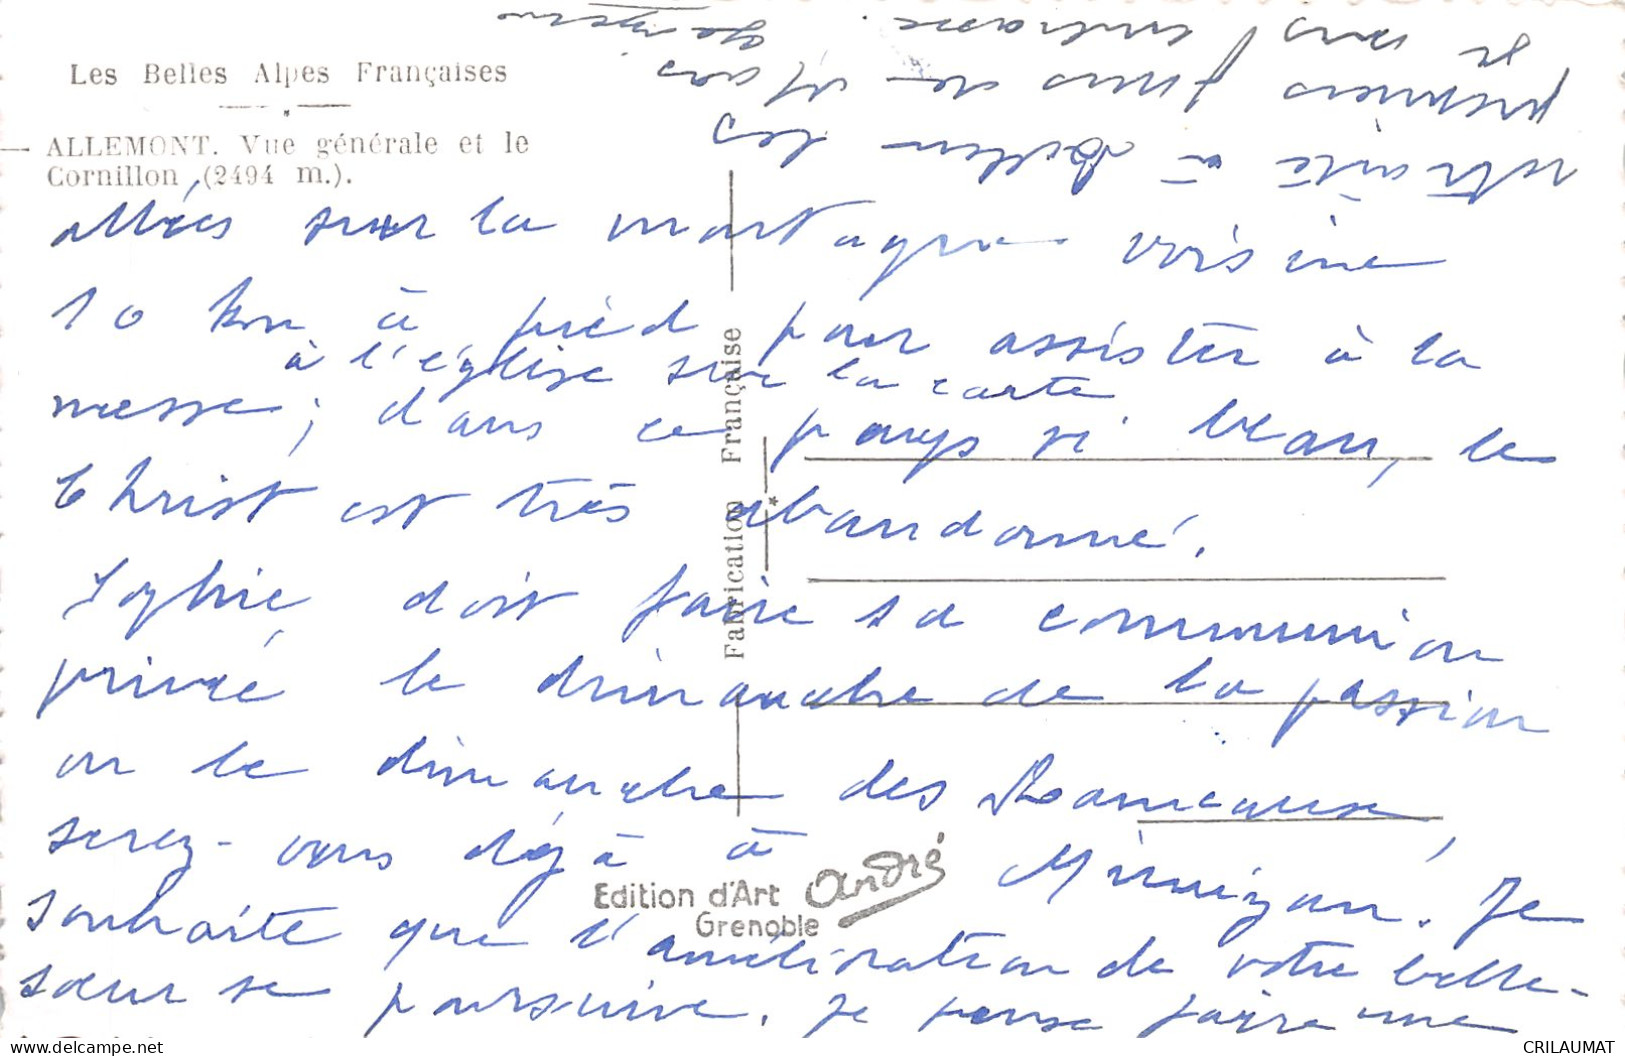 Les Belles Alpes Françaises
ALLEMONT. Vue générale et le
Cornillon (2494 m.).
allées sur la montagne voisine
10 km à pied pour assister à la
à l'église sur la carte
messe ; dans ce pays si beau, le
Christ est très abandonné.
Sophie doit faire sa communion
privée le dimanche de la passion
ou le dimanche des Rameaux,
serez-vous déjà à Mimizan. Je
souhaite que l'amélioration de votre belle-
sœur se poursuive. Je pense faire une
retraite à les
premiers jours de Mars.
Je vous embrasse.
Fabrication Française
Edition d'Art André
Grenoble
CRILAUMAT